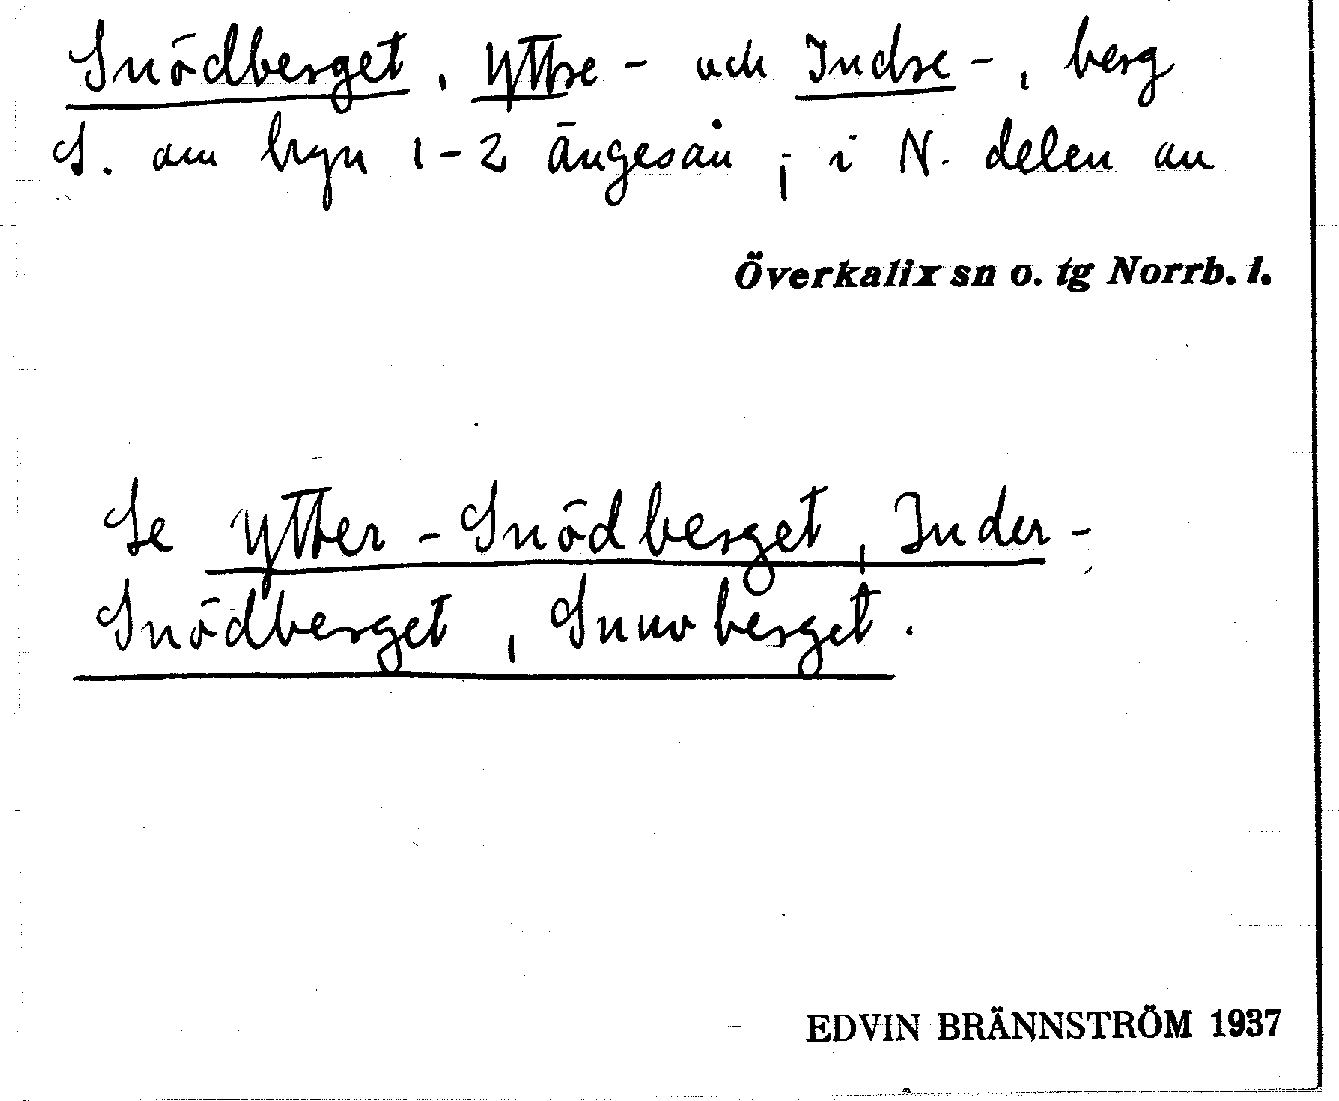 Snödberget, Yttre- och Indre-, berg
S. om byn 1-2 Ängesån; i N. delen av
Överkalix sn o. tg Norrb. l.
Se Ytter-Snödberget, Inder-
Snödberget, Snuvberget.
EDVIN BRÄNNSTRÖM 1937